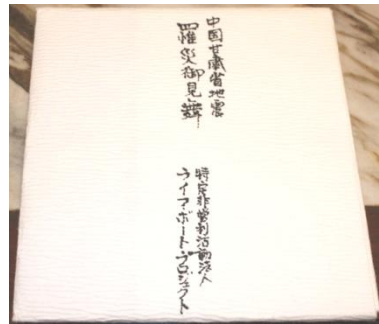 中国甘粛省地震
罹災御見舞
特定非営利活動法人
ライフ・ボート・プロジェクト